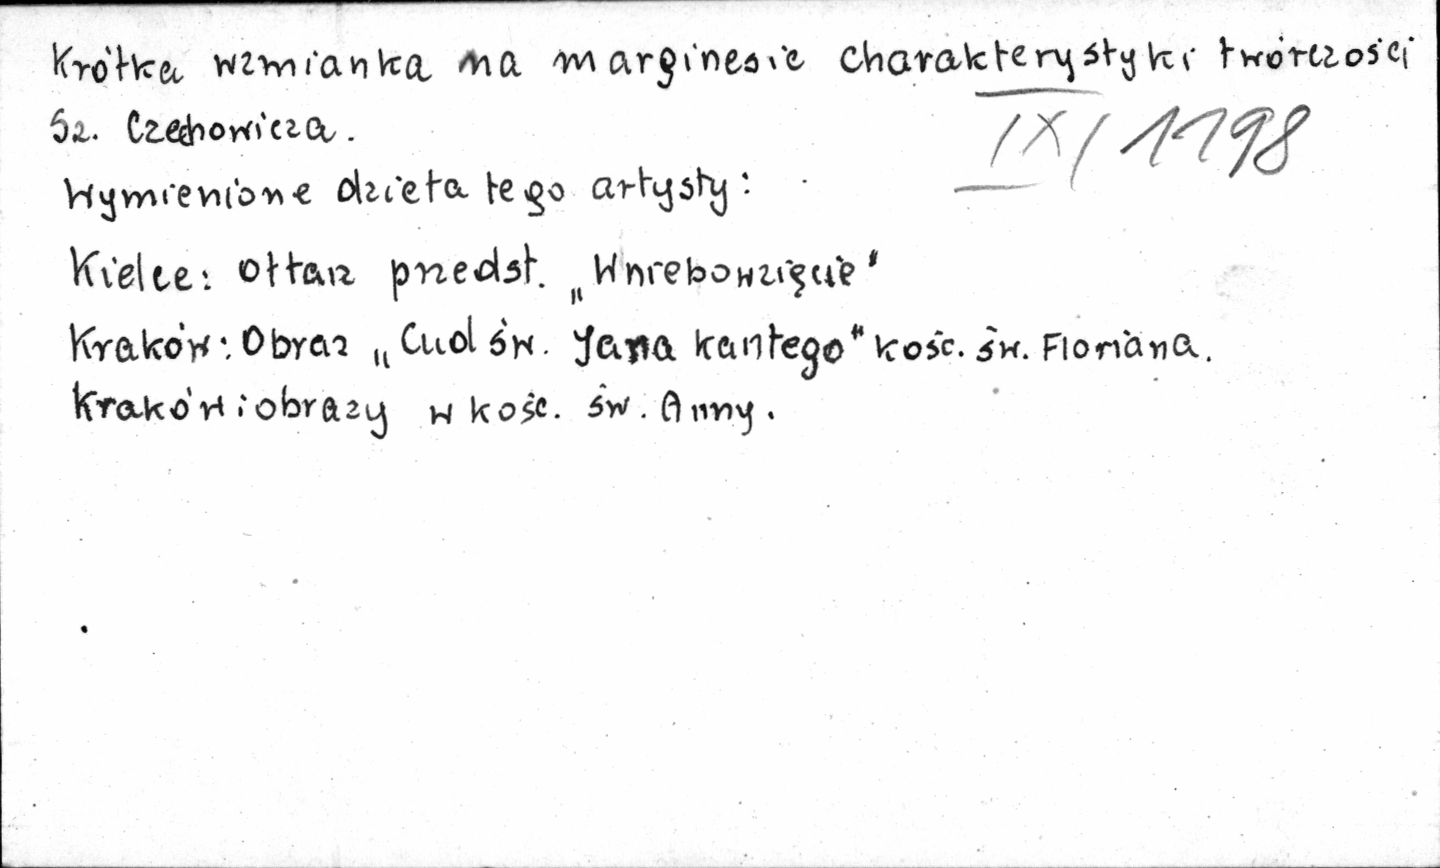 Krótka wzmianka na marginesie charakterystyki twórczości
Sz. Czechowicza.
IX/1198
Wymienione dzieła tego artysty:
Kielce: Ołtarz przedst. „Wniebowzięcie"
Kraków: Obraz „Cud św. Jana Kantego" kośc. św. Floriana.
Kraków: obrazy w kośc. św. Anny.